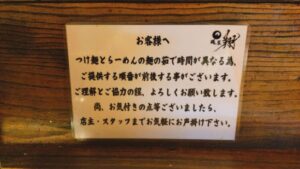 お客様へ
つけ麺とらーめんの麺の茹で時間が異なる為、
ご提供する順番が前後する事がございます。
ご理解とご協力の程、よろしくお願い致します。
尚、お気付きの点等ございましたら、
店主・スタッフまでお気軽にお声掛け下さい。